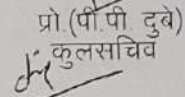 प्रो.(पी.पी. दुबे)
कुलसचिव